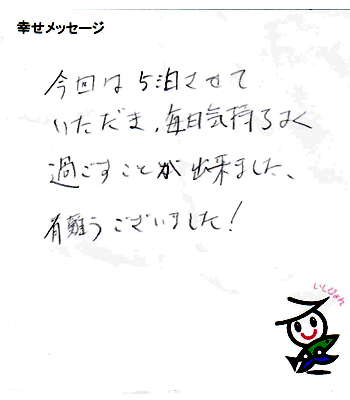 幸せメッセージ
今回は5泊させて
いただき、毎日気持ちよく
過ごすことが出来ました、
有難うございました!
いしぴょん